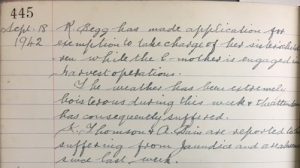 445
Sept. 18 K. Begg has made application for
1942 exemption to take charge of her sister's child
ren while the mother is engaged in
harvest operations.
The weather has been extremely
boisterous during this week & attendance
has consequently suffered.
Thomson & A. Bain are reported to
suffering from jaundice and are absent
since last week.